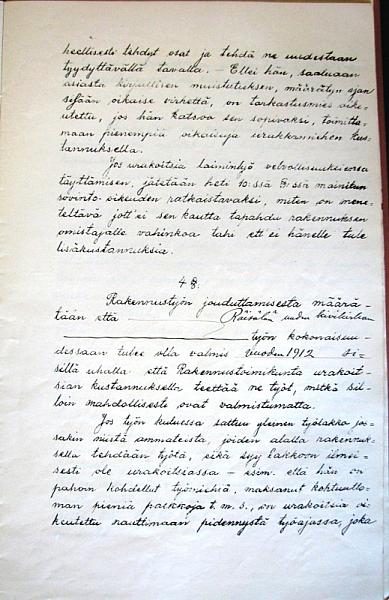 heellisesti tehdyt osat ja tehdä ne uudestaan
tyydyttävällä tavalla. - Ellei hän, saatuaan
asiasta kirjallisen muistutuksen, määrätyn ajan
sisään oikaise virhettä, on tarkastusmies oike-
utettu, jos hän katsoo sen sopivaksi, toimitta-
maan pienempiä oikaisuja urakkamiehen kus-
tannuksella.
Jos urakoitsia laiminlyö velvollisuuksiensa
täyttämisen, jätetään heti 10:ssä §:ssä mainitun
sovinto-oikeuden ratkaistavaksi, miten on mene-
teltävä jott'ei sen kautta tapahdu rakennuksen
omistajalle vahinkoa tahi ett'ei hänelle tule
lisäkustannuksia.
4 §.
Rakennustyön jouduttamisesta määrä-
tään että Räisälän uuden kivikirkon
työn kokonaisuu-
dessaan tulee olla valmis vuoden 1912
sillä uhalla että Rakennustoimikunta urakoit-
sian kustannuksella teettää ne työt, mitkä sil-
loin mahdollisesti ovat valmistumatta.
Jos työn kuluessa sattuu yleinen työlakko jos-
sakin niistä ammateista, joiden alalla rakennuk-
sella tehdään työtä, eikä syy lakkoon ilmei-
sesti ole urakoitsiassa - esim. että hän on
pahoin kohdellut työmiehiä, maksanut kohtuutto-
man pieniä palkkoja t.m.s., on urakoitsia oi-
keutettu nauttimaan pidennystä työajassa, joka